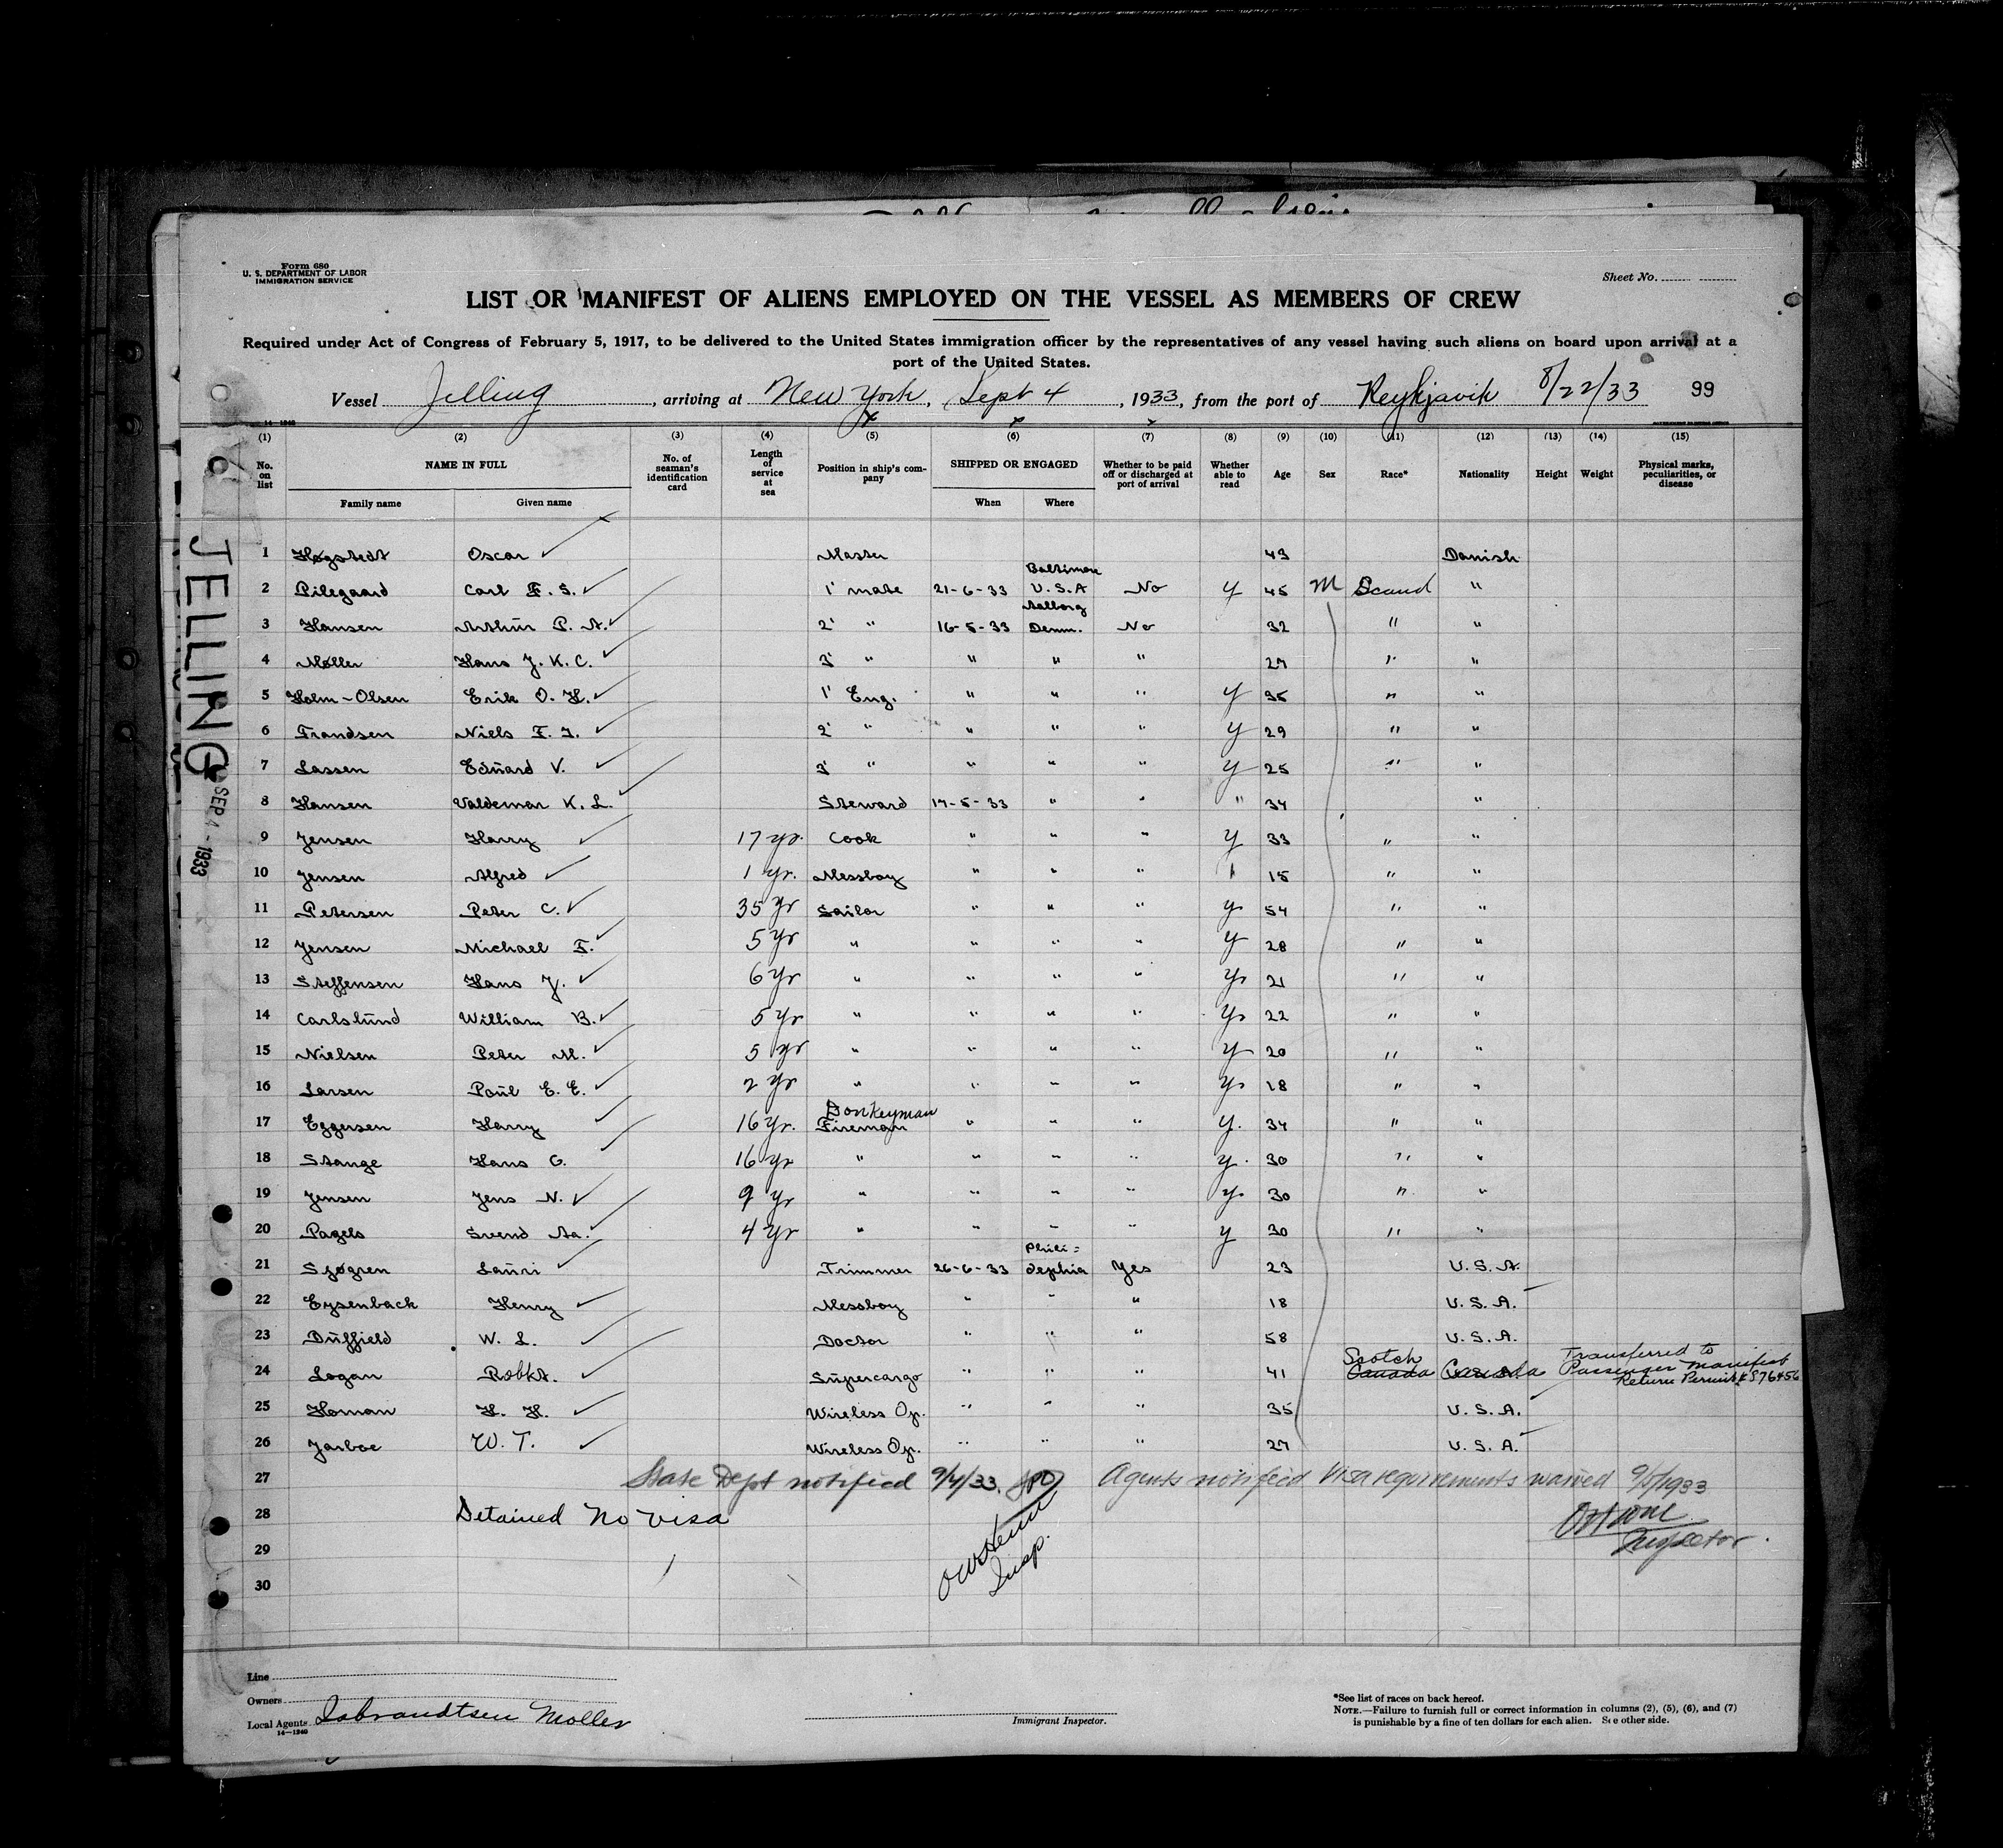 Form 680
U. S. DEPARTMENT OF LABOR
IMMIGRATION SERVICE
Sheet No.
LIST OR MANIFEST OF ALIENS EMPLOYED ON THE VESSEL AS MEMBERS OF CREW
Required under Act of Congress of February 5, 1917, to be delivered to the United States immigration officer by the representatives of any vessel having such aliens on board upon arrival at a
port of the United States.
Vessel Jelling, arriving at New York, Sept 4, 1933, from the port of Reykjavik 8/22/33 99
14—1240
(1) (2) (3) (4) (5) (6) (7) (8) (9) (10) (11) (12) (13) (14) (15)
No. on list NAME IN FULL Family name Given name No. of seaman's identification card Length of service at sea Position in ship's company SHIPPED OR ENGAGED When Where Whether to be paid off or discharged at port of arrival Whether able to read Age Sex Race* Nationality Height Weight Physical marks, peculiarities, or disease
JELLING SEP 4 - 1933
1 Høgstedt Oscar Master 43 Danish
2 Pilegaard Carl F. S. 1' mate 21-6-33 Baltimore U.S.A No y 45 M Scand "
3 Hansen Arthur P. A. 2' " 16-5-33 Aalborg Denm. No 32 " "
4 Møller Hans J. K. C. 3' " " " " 27 " "
5 Holm-Olsen Erik O. H. 1' Eng. " " " y 35 " "
6 Frandsen Niels F. J. 2' " " " " y 29 " "
7 Lassen Eduard V. 3' " " " " y 25 " "
8 Hansen Valdemar K. L. Steward 17-5-33 " " " 34 "
9 Jensen Harry 17 yr. Cook " " " y 33 " "
10 Jensen Alfred 1 yr. Messboy " " " 15 " "
11 Petersen Peter C. 35 yr Sailor " " " y 54 " "
12 Jensen Michael F. 5 yr " " " " y 28 " "
13 Steffensen Hans J. 6 yr " " " " y 21 " "
14 Carlslund William B. 5 yr " " " " y 22 " "
15 Nielsen Peter M. 5 yr " " " " y 20 " "
16 Larsen Poul E. E. 2 yr " " " " y 18 " "
17 Eggersen Harry 16 yr. Donkeyman Fireman " " " y. 34 " "
18 Stange Hans G. 16 yr " " " " y. 30 " "
19 Jensen Jens N. 9 yr " " " " y 30 " "
20 Pagels Svend Aa. 4 yr " " " " y 30 " "
21 Sjøgren Lauri Trimmer 26-6-33 Phili= delphia Yes 23 U.S.A.
22 Eysenback Henry Messboy " " " 18 U.S.A.
23 Duffield W. L. Doctor " " " 58 U.S.A.
24 Logan Robkt. Supercargo " " " 41 Scotch Canada Canada Transferred to Passenger Manifest Return Permit # 976456
25 Homan H. H. Wireless Op. " " " 35 U.S.A.
26 Jarboe W. T. Wireless Op. " " " 27 U.S.A.
27 State Dept notified 9/4/33. Agents notified Visa requirements waived 9/5/1933
28 Detained No visa
Insp.
Inspector.
29
30
Line
Owners
Local Agents Isbrandtsen Moller
14—1240
Immigrant Inspector.
*See list of races on back hereof.
NOTE.—Failure to furnish full or correct information in columns (2), (5), (6), and (7)
is punishable by a fine of ten dollars for each alien. See other side.